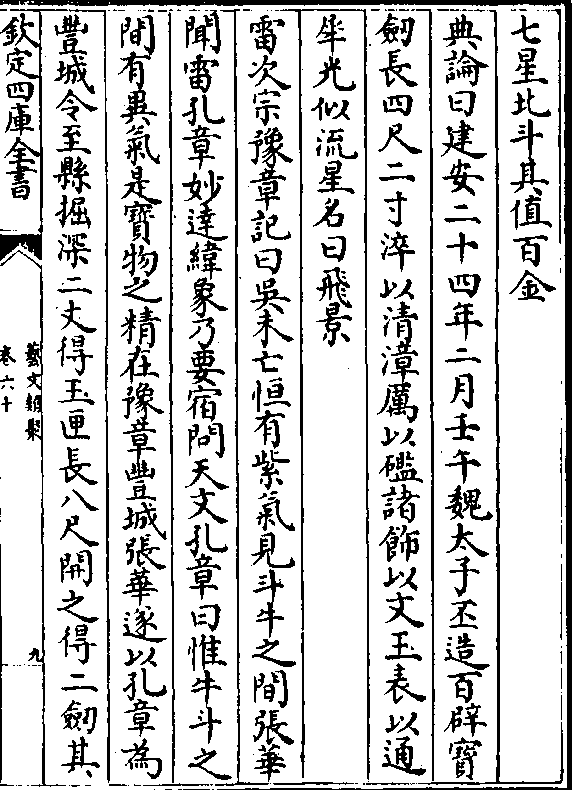 七星北斗其值百金
典論曰建安二十四年二月壬午魏太子丕造百辟寶
劒長四尺二寸淬以清漳厲以礛諸飾以文玉表以通
犀光似流星名曰飛景
雷次宗豫章記曰吳未亡恒有紫氣見斗牛之間張華
聞雷孔章妙達緯象乃要宿問天文孔章曰惟牛斗之
間有異氣是寶物之精在豫章豐城張華遂以孔章為
豐城令至縣掘深二丈得玉匣長八尺開之得二劒其
欽定四庫全書
藝文類聚
卷六十
九